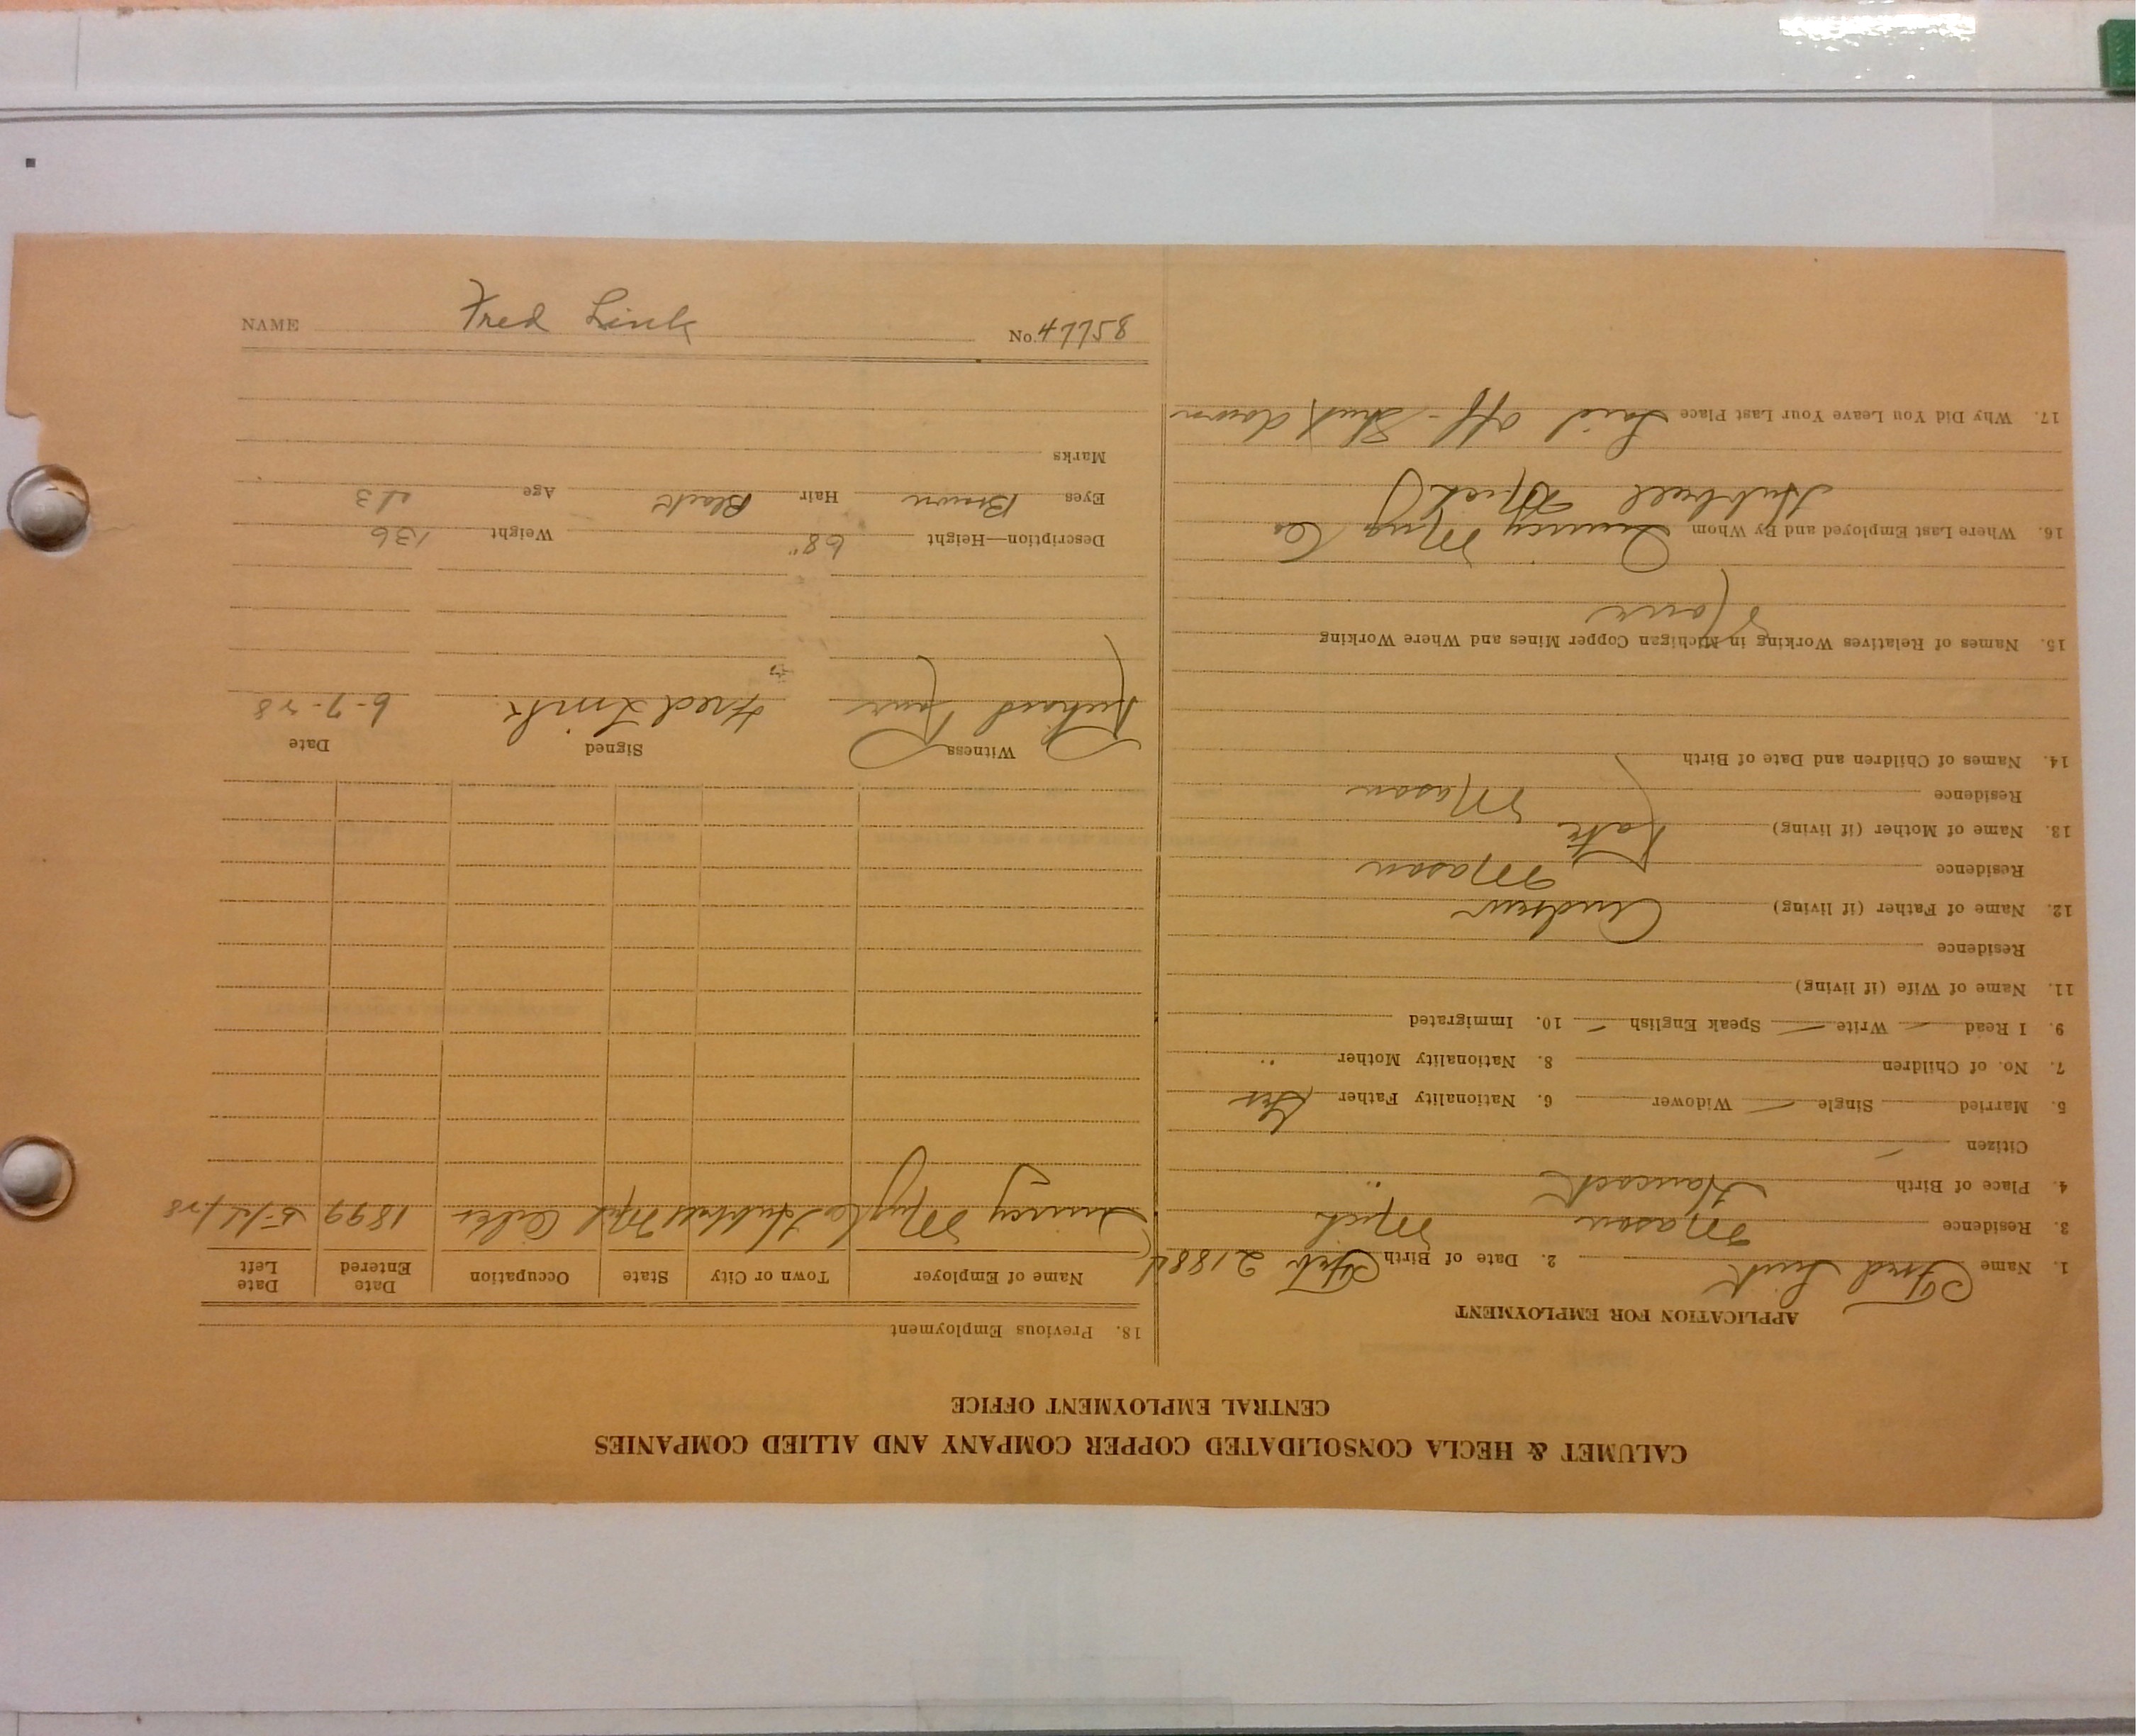 NAME Fred Link No. 47758
CALUMET & HECLA CONSOLIDATED COPPER COMPANY AND ALLIED COMPANIES
CENTRAL EMPLOYMENT OFFICE
APPLICATION FOR EMPLOYMENT
1. Name Fred Link 2. Date of Birth Feb 2 1884
3. Residence Mason Mich
4. Place of Birth Hancock "
Citizen
5. Married Single Widower 6. Nationality Father Ger
7. No. of Children 8. Nationality Mother "
9. I Read Write Speak English 10. Immigrated
11. Name of Wife (if living)
Residence
12. Name of Father (if living) Andrew
Residence Mason
13. Name of Mother (if living) Kate
Residence Mason
14. Names of Children and Date of Birth
15. Names of Relatives Working in Michigan Copper Mines and Where Working
None
16. Where Last Employed and By Whom Quincy Mng Co
Hubbell Mich
17. Why Did You Leave Your Last Place Laid off - Shut down
18. Previous Employment
Name of Employer Town or City State Occupation Date Entered Date Left
Quincy Mng Co Hubbell Mich Oiler 1899 5/ /28
Witness Signed Date
Richard Fred Link 6-7-28
Description—Height 68" Weight 136
Eyes Brown Hair Black Age
Marks